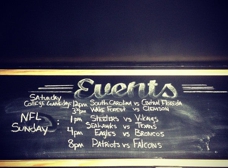 Events
Saturday
College Gameday: 12pm South Carolina vs Central Florida
3:30pm Wake Forest vs Clemson
NFL Sunday: 1pm Steelers vs Vikings
Seahawks vs Texans
4pm Eagles vs Broncos
8pm Patriots vs Falcons